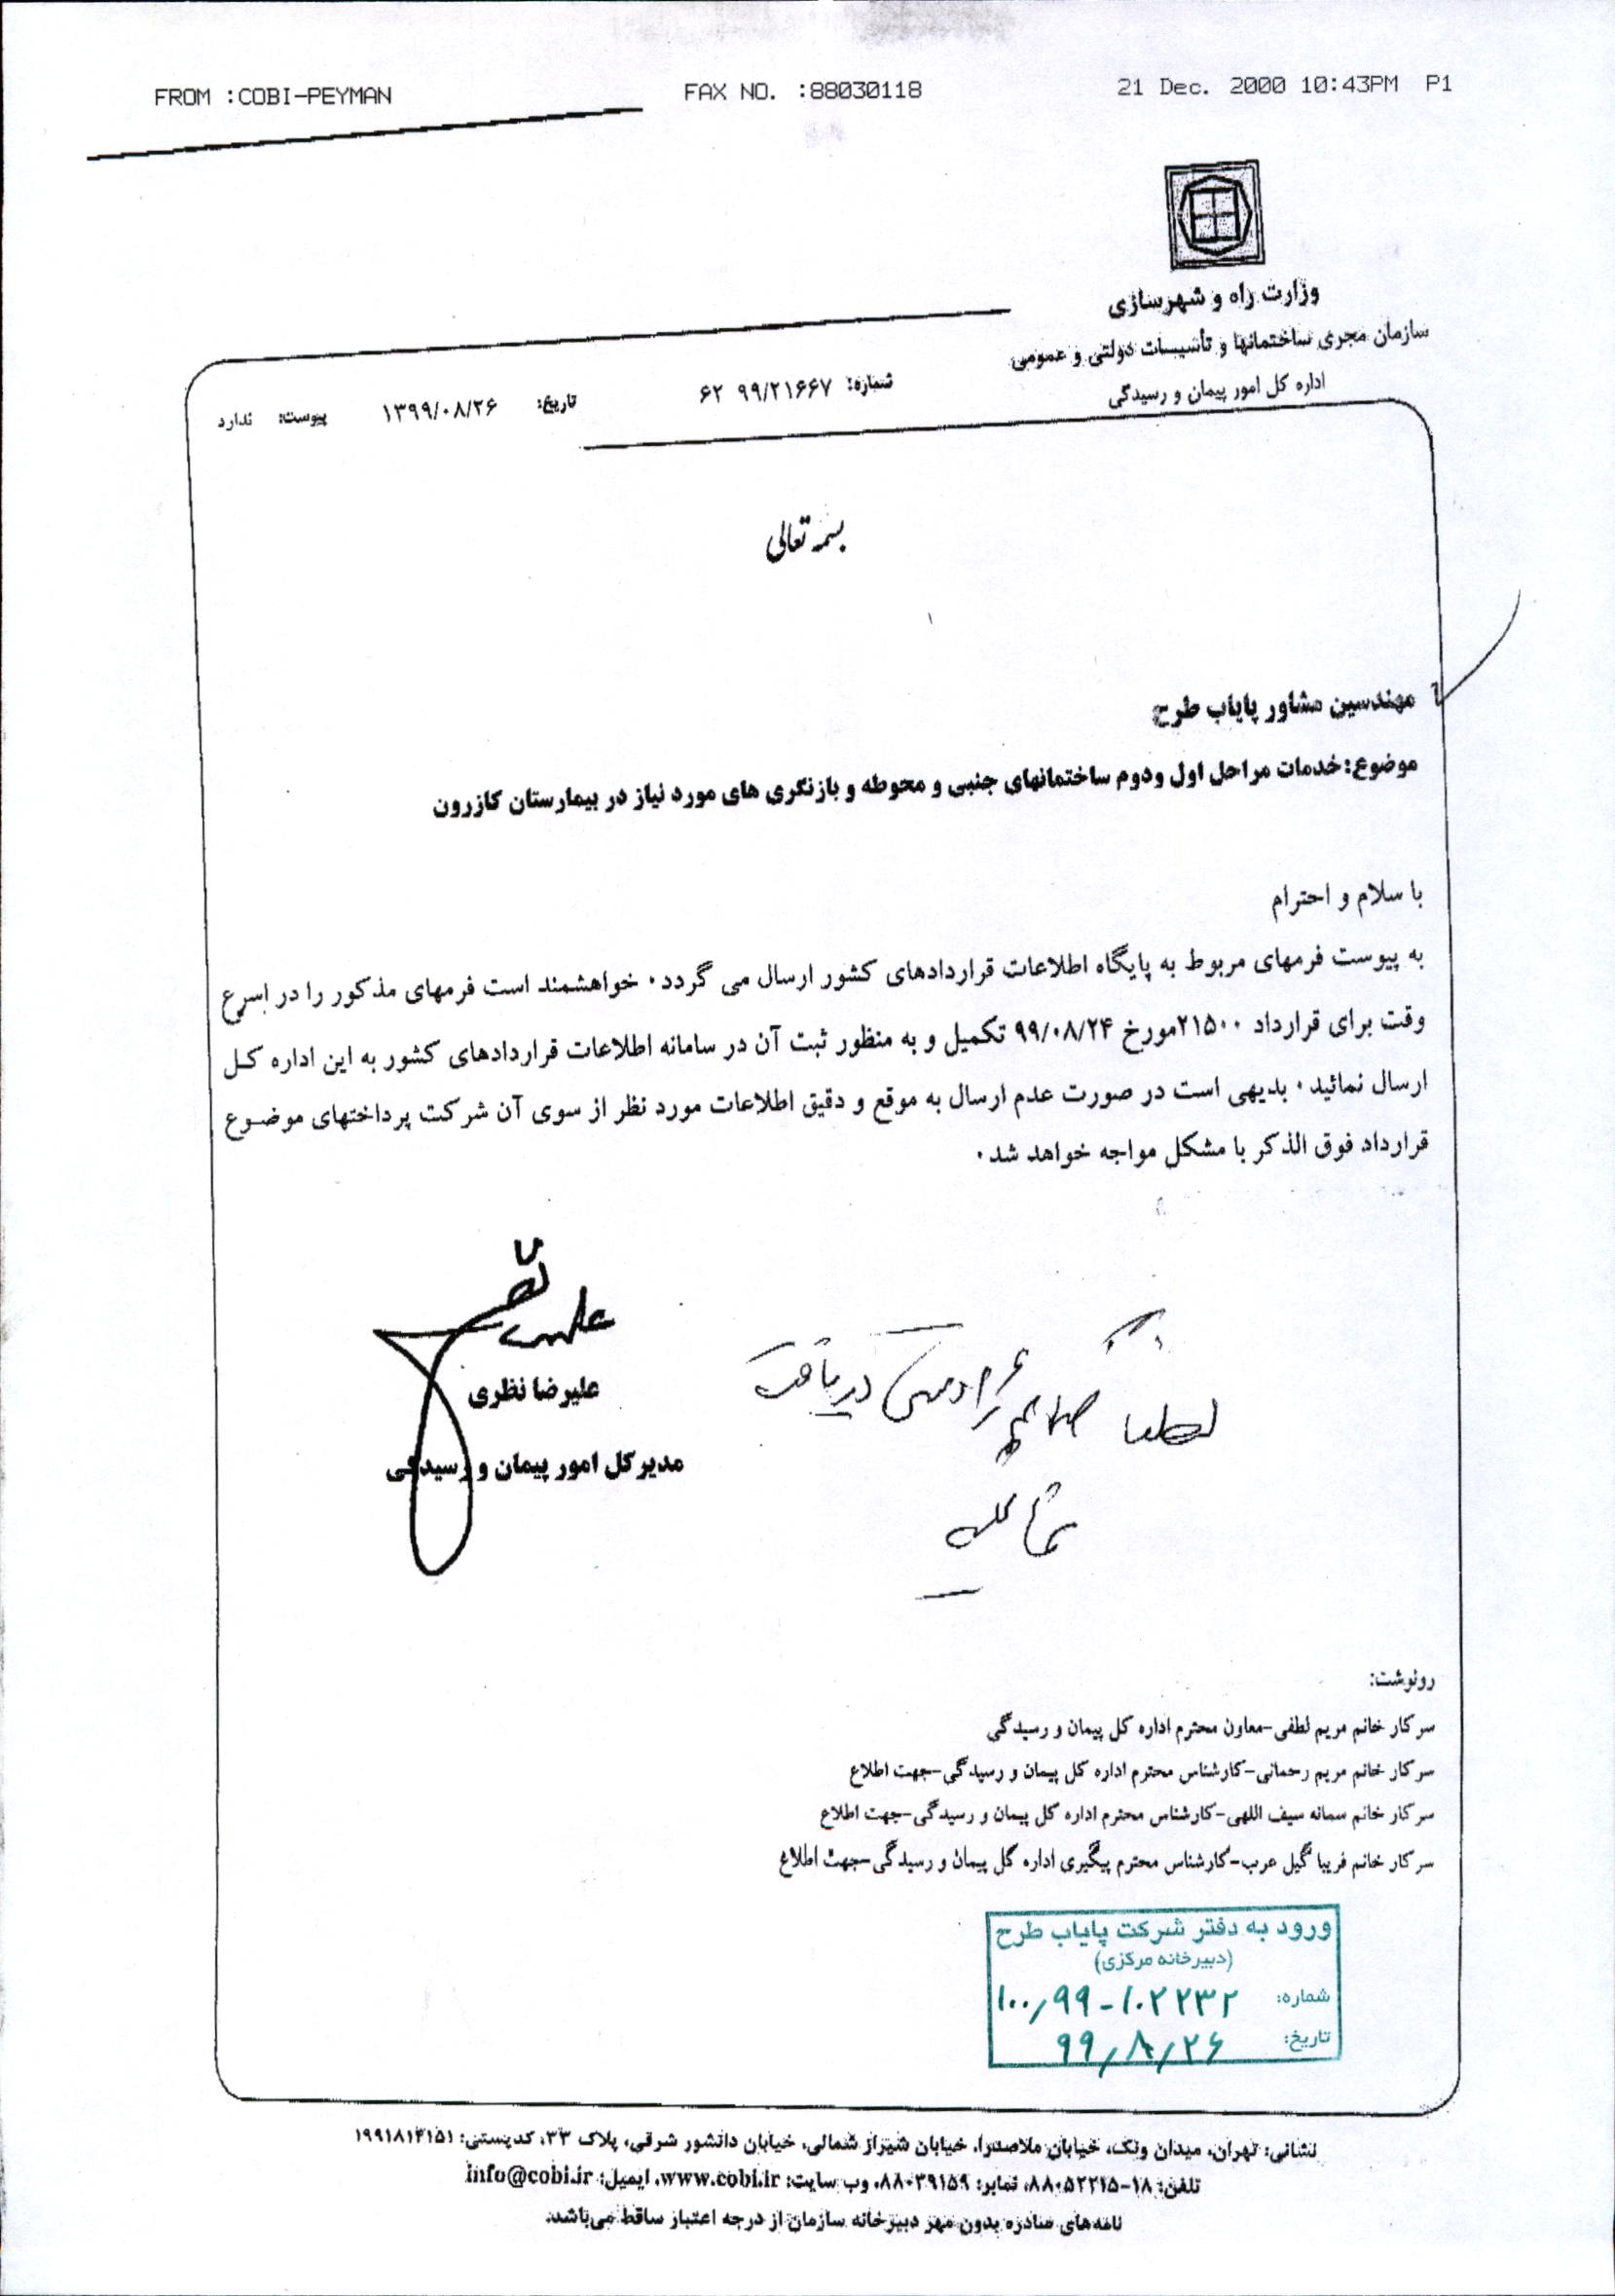 FROM :COBI-PEYMAN FAX NO. :88030118 21 Dec. 2000 10:43PM P1
وزارت راه و شهرسازی
سازمان مجری ساختمانها و تأسیسات دولتی و عمومی
اداره کل امور پیمان و رسیدگی
شماره: ۹۹/۲۱۶۶۷ ۶۲ تاریخ: ۱۳۹۹/۰۸/۲۶ پیوست: ندارد
بسمه تعالی
مهندسین مشاور پایاب طرح
موضوع:خدمات مراحل اول ودوم ساختمانهای جنبی و محوطه و بازنگری های مورد نیاز در بیمارستان کازرون
با سلام و احترام
به پیوست فرمهای مربوط به پایگاه اطلاعات قراردادهای کشور ارسال می گردد۰ خواهشمند است فرمهای مذکور را در اسرع
وقت برای قرارداد ۲۱۵۰۰مورخ ۹۹/۰۸/۲۴ تکمیل و به منظور ثبت آن در سامانه اطلاعات قراردادهای کشور به این اداره کل
ارسال نمائید۰ بدیهی است در صورت عدم ارسال به موقع و دقیق اطلاعات مورد نظر از سوی آن شرکت پرداختهای موضوع
قرارداد فوق الذکر با مشکل مواجه خواهد شد۰
علیرضا نظری
مدیرکل امور پیمان و رسیدگی
لطفا دریافت
رونوشت:
سرکار خانم مریم لطفی-معاون محترم اداره کل پیمان و رسیدگی
سرکار خانم مریم رحمانی-کارشناس محترم اداره کل پیمان و رسیدگی-جهت اطلاع
سرکار خانم سمانه سیف اللهی-کارشناس محترم اداره کل پیمان و رسیدگی-جهت اطلاع
سرکار خانم فریبا گیل عرب-کارشناس محترم پیگیری اداره کل پیمان و رسیدگی-جهت اطلاع
ورود به دفتر شرکت پایاب طرح
(دبیرخانه مرکزی)
شماره: ۱۰۰٫۹۹-۱۰۲۲۳۲
تاریخ: ۹۹/۸/۲۶
نشانی: تهران، میدان ونک، خیابان ملاصدرا، خیابان شیراز شمالی، خیابان دانشور شرقی، پلاک ۳۳، کدپستی: ۱۹۹۱۸۱۴۱۵۱
تلفن: ۱۸-۸۸۰۵۲۲۱۵، نمابر: ۸۸۰۳۹۱۵۹، وب سایت: www.cobi.ir، ایمیل: info@cobi.ir
نامه‌های صادره بدون مهر دبیرخانه سازمان از درجه اعتبار ساقط می‌باشد.